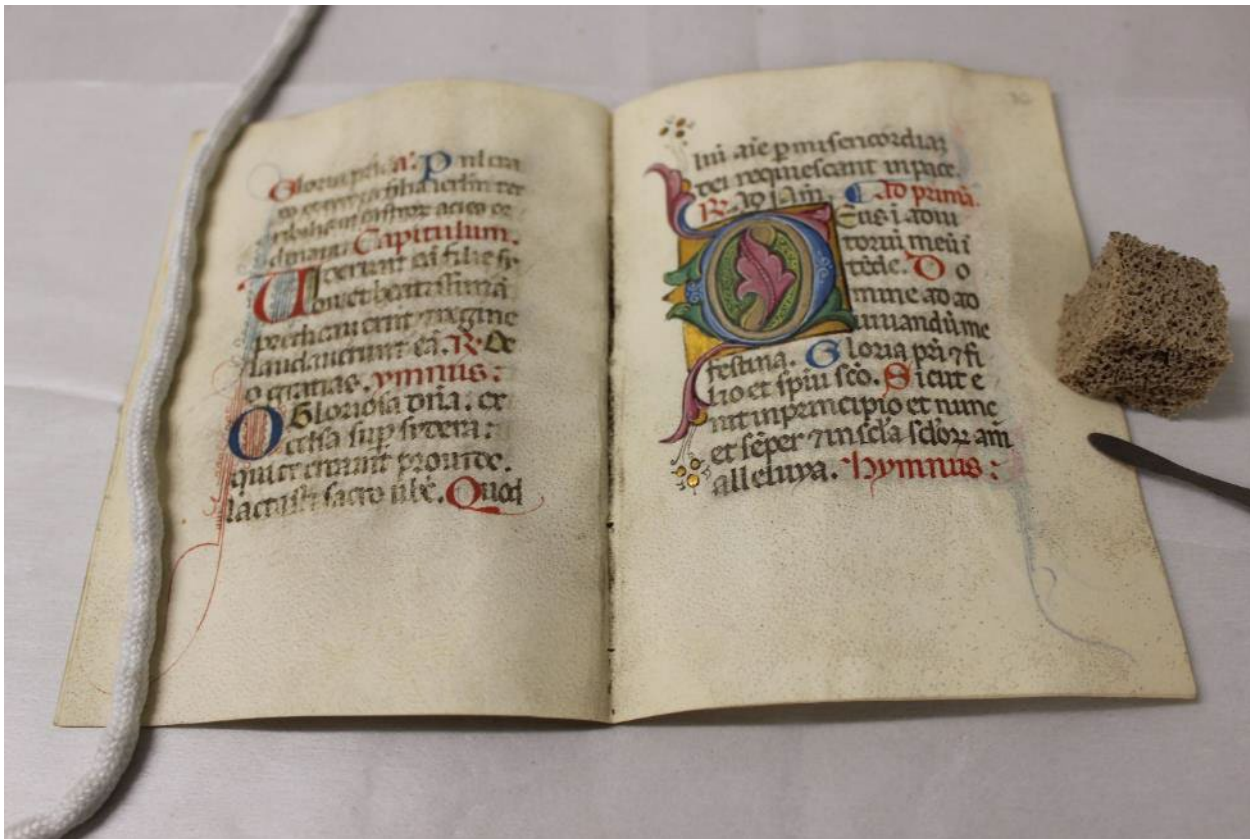 Gloria patri. a. Pulcra
es et decora filia ierlm ter
ribilis ut castror acies or
dinata. Capitulum.
Viderunt eā filie sy
on et beatissimā
predicauerunt ⁊ regine
laudauerunt eā. R. De
o gratias. ymnus:
O Gloriosa dn̄a. ex
celsa sup sydera:
qui te creauit prouide.
lactasti sacro ubē. Quod
liū aīe p misericordiaꝫ
dei requiescant in pace.
R. Ad iam. Ad primā.
Deus ī adiu
toriū meū ī
tēde. Do
mine ad ad
iuuandū me
festina. Gloria pr̄i ⁊ fi
lio et spiu scō. Sicut e
rat in principio et nunc
et sēper ⁊ in scl̄a scloꝝ am̄
alleluya. hymnus: